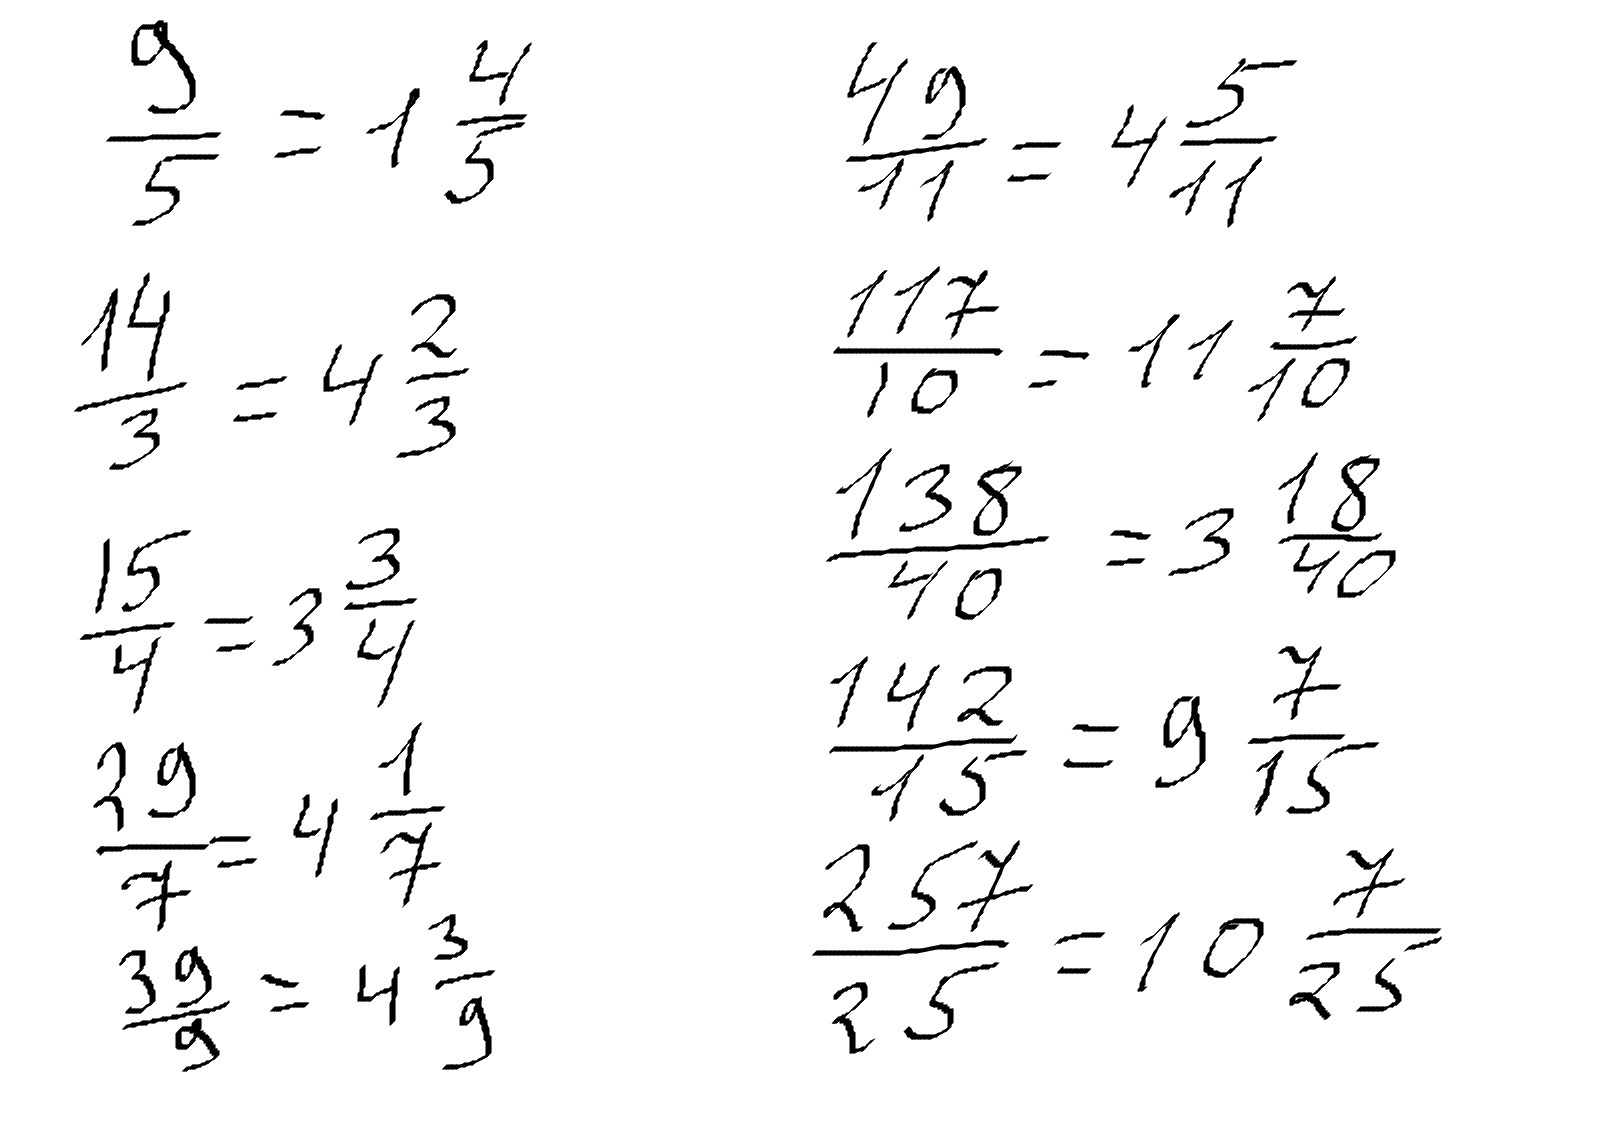 9/5 = 1 4/5
14/3 = 4 2/3
15/4 = 3 3/4
29/7 = 4 1/7
39/9 = 4 3/9
49/11 = 4 5/11
117/10 = 11 7/10
138/40 = 3 18/40
142/15 = 9 7/15
257/25 = 10 7/25